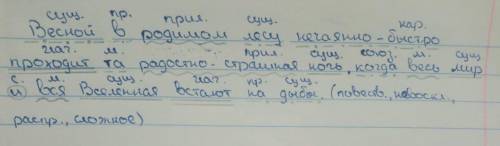 сущ. пр. прил. сущ. нар.
Весной в родимом лесу нечаянно-быстро
глаг. м. прил. сущ. союз. м. сущ
проходит та радостно-страшная ночь, когда весь мир
с. м. сущ. глаг. пр. сущ.
и вся Вселенная встают на дыбы. (повеств., невоскл.,
распр., сложное)